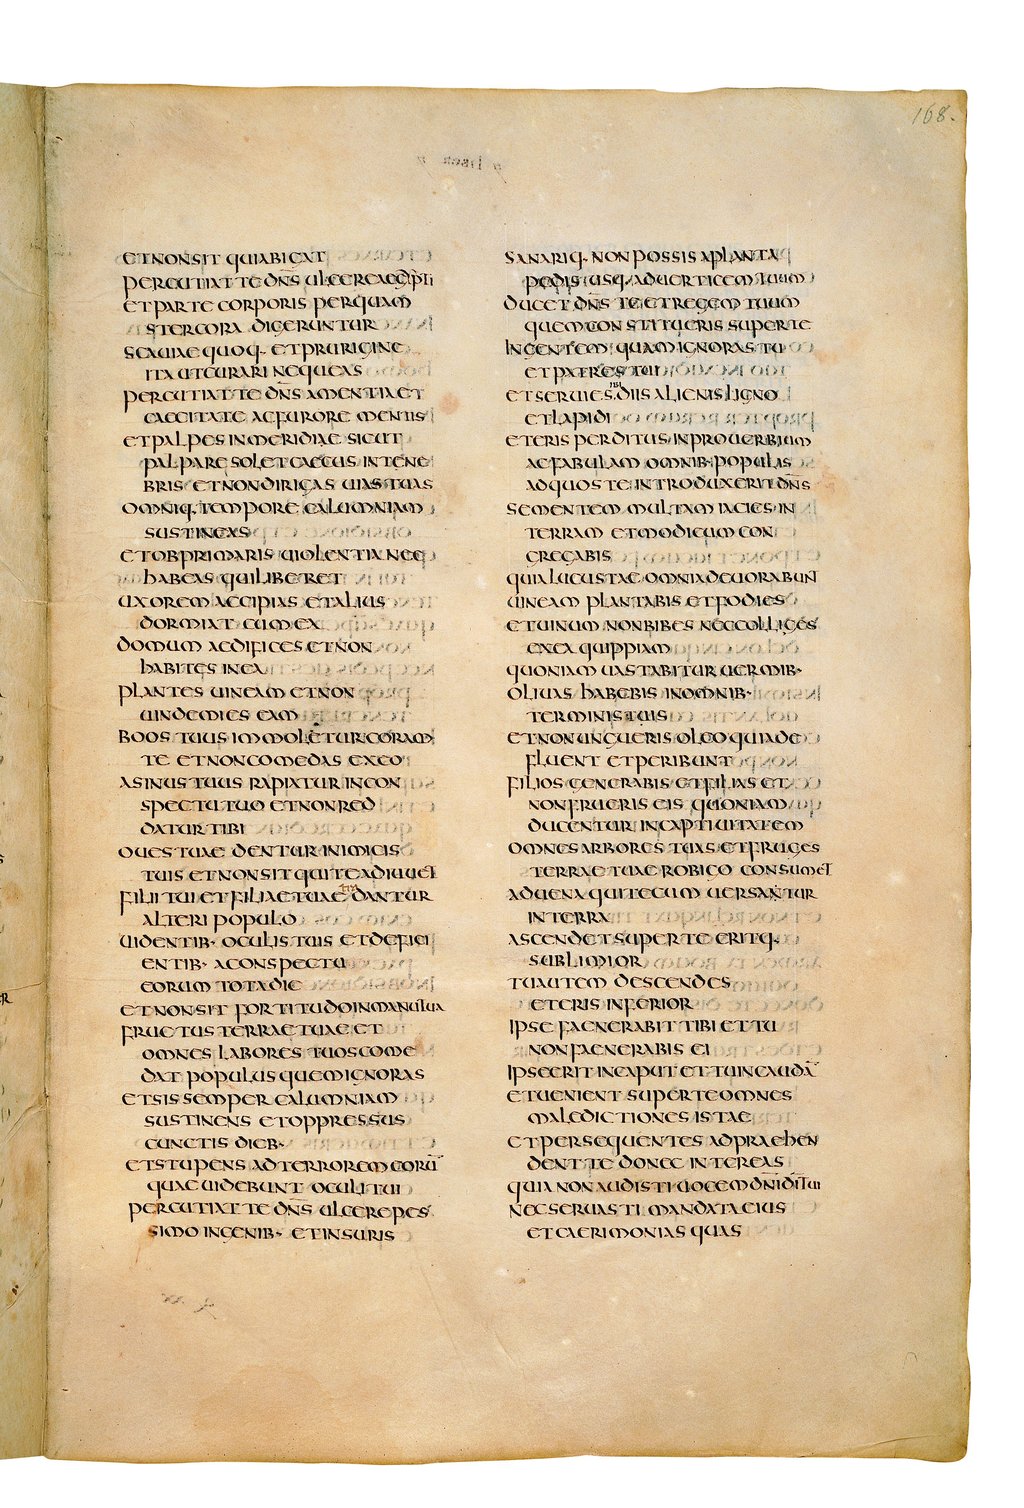 168.
ET NON SIT QUI ABICIAT
PERCUTIAT TE DN̄S ULCERE AEGIPTI
ET PARTE CORPORIS PER QUAM
STERCORA DIGERUNTUR
SCAUIAE QUOQ· ET PRURIGINE
ITA UT CURARI NEQUEAS
PERCUTIAT TE DN̄S AMENTIA ET
CAECITATE AC FURORE MENTIS
ET PALPES IN MERIDIAE SICUT
PALPARE SOLET CAECUS IN TENE
BRIS ET NON DIRIGAS UIAS TUAS
OMNIQ· TEMPORE CALUMNIAM
SUSTINEAS
ET OBPRIMARIS UIOLENTIA NEC
HABEAS QUI LIBERET
UXOREM ACCIPIAS ET ALIUS
DORMIAT CUM EA
DOMUM AEDIFICES ET NON
HABITES IN EA
PLANTES UINEAM ET NON
UINDEMIES EAM
BOOS TUUS IMMOLETUR CORAM
TE ET NON COMEDAS EX EO
ASINUS TUUS RAPIATUR IN CON
SPECTU TUO ET NON RED
DATUR TIBI
OUES TUAE DENTUR INIMICIS
TUIS ET NON SIT QUI TE ADIUUET
FILII TUI ET FILIAE TUAE DANTUR
ALTERI POPULO
UIDENTIB· OCULIS TUIS ET DEFICI
ENTIB· A CONSPECTU
EORUM TOTA DIE
ET NON SIT FORTITUDO IN MANU TUA
FRUCTUS TERRAE TUAE ET
OMNES LABORES TUOS COME
DAT POPULUS QUEM IGNORAS
ET SIS SEMPER CALUMNIAM
SUSTINENS ET OPPRESSUS
CUNCTIS DIEB·
ET STUPENS AD TERROREM EORŪ
QUAE UIDEBUNT OCULI TUI
PERCUTIAT TE DN̄S ULCERE PES
SIMO IN GENIB· ET IN SURIS
SANARIQ· NON POSSIS A PLANTA
PEDIS USQ· AD UERTICEM TUUM
DUCET DN̄S TE ET REGEM TUUM
QUEM CONSTITUERIS SUPER TE
IN GENTEM QUAM IGNORAS TU
ET PATRES TUI
ET SERUIES IBI DIIS ALIENIS LIGNO
ET LAPIDI
ET ERIS PERDITUS IN PROUERBIUM
AC FABULAM OMNIB· POPULIS
AD QUOS TE INTRODUXERIT DN̄S
SEMENTEM MULTAM IACIES IN
TERRAM ET MODICUM CON
GREGABIS
QUIA LUCUSTAE OMNIA DEUORABUN̄
UINEAM PLANTABIS ET FODIES
ET UINUM NON BIBES NEC COLLIGES
EX EA QUIPPIAM
QUONIAM UASTABITUR UERMIB·
OLIUAS HABEBIS IN OMNIB·
TERMINIS TUIS
ET NON UNGUERIS OLEO QUIA DE
FLUENT ET PERIBUNT
FILIOS GENERABIS ET FILIAS ET
NON FRUERIS EIS QUONIAM
DUCENTUR IN CAPTIUITATEM
OMNES ARBORES TUAS ET FRUGES
TERRAE TUAE ROBIGO CONSUMET
ADUENA QUI TECUM UERSANTUR
IN TERRA
ASCENDET SUPER TE ERITQ·
SUBLIMIOR
TU AUTEM DESCENDES
ET ERIS INFERIOR
IPSE FAENERABIT TIBI ET TU
NON FAENERABIS EI
IPSE ERIT IN CAPUT ET TU IN CAUDĀ
ET UENIENT SUPER TE OMNES
MALEDICTIONES ISTAE
ET PERSEQUENTES ADPRAEHEN
DENT TE DONEC INTEREAS
QUIA NON AUDISTI UOCEM DN̄I DĪ TUI
NEC SERUASTI MANDATA EIUS
ET CAERIMONIAS QUAS